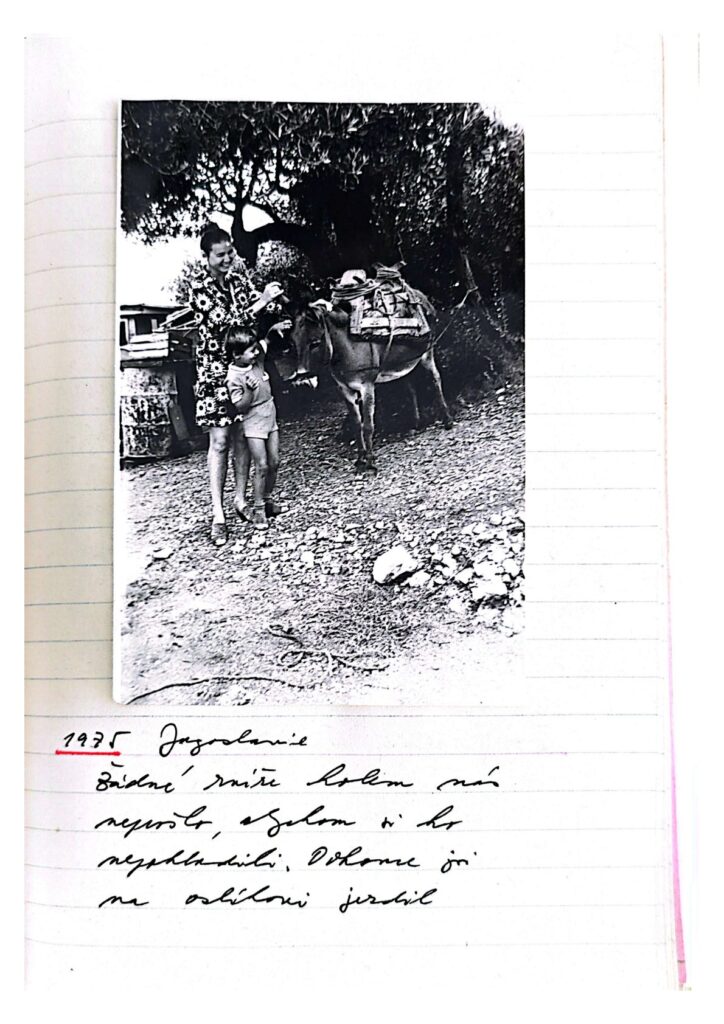 1975 Jugoslavie
Žádné zvíře kolem nás
neprošlo, abychom si ho
nepohladili. Dokonce jsi
na oslíkovi jezdil